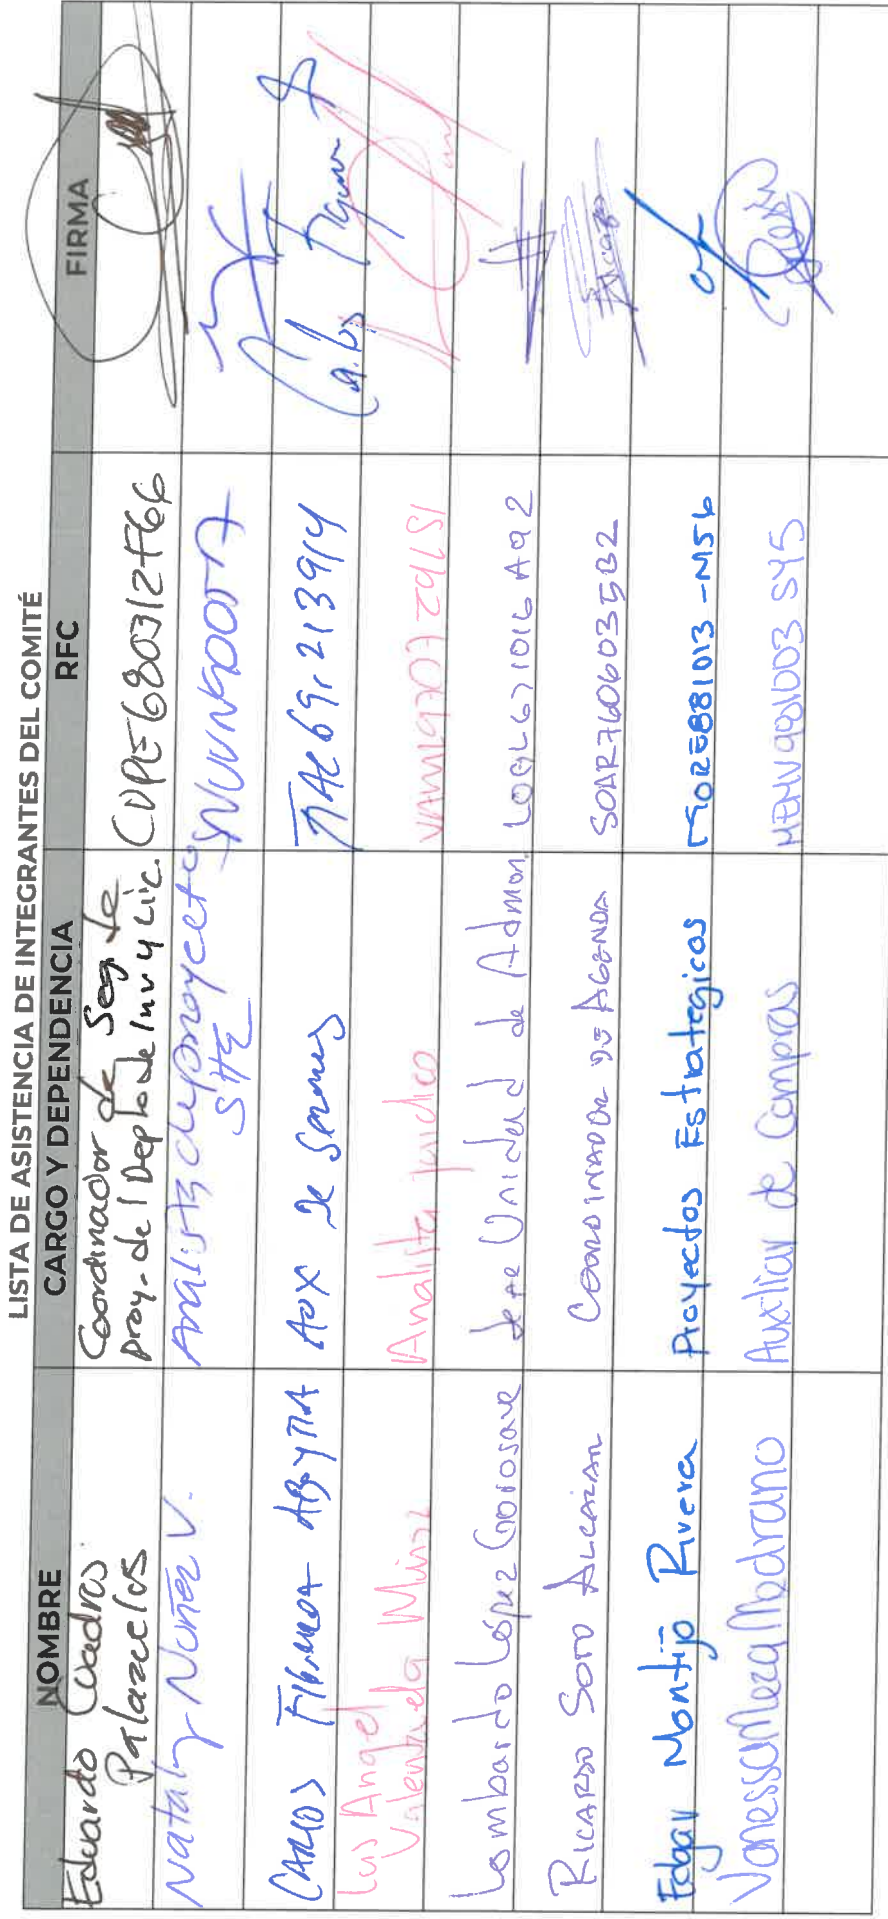 LISTA DE ASISTENCIA DE INTEGRANTES DEL COMITÉ
NOMBRE CARGO Y DEPENDENCIA RFC FIRMA
Eduardo Cuadros Palazuelos
Coordinador de Seg. de
proy. del Depto de Inv y Lic.
CUPE680312F66
Nataly Nuñez V.
Analista de proyecto
SHE
CARLOS FIGUEROA ABOYTIA Aux de Servicios
Carlos Figueroa
Luis Angel
Valenzuela Miraz
Analista juridico
VAML970729LS1
Lombardo López Gorosave Jefe Unidad de Admon. LOGL671016AQ2
RICARDO SOTO ALCARAZ COORDINADOR DE AGENDA SOAR7606035B2
Edgar Montijo Rivera Proyectos Estrategicos MORE881013-M56
Vanessa Meza Medrano Auxiliar de Compras MEMV981003SY5